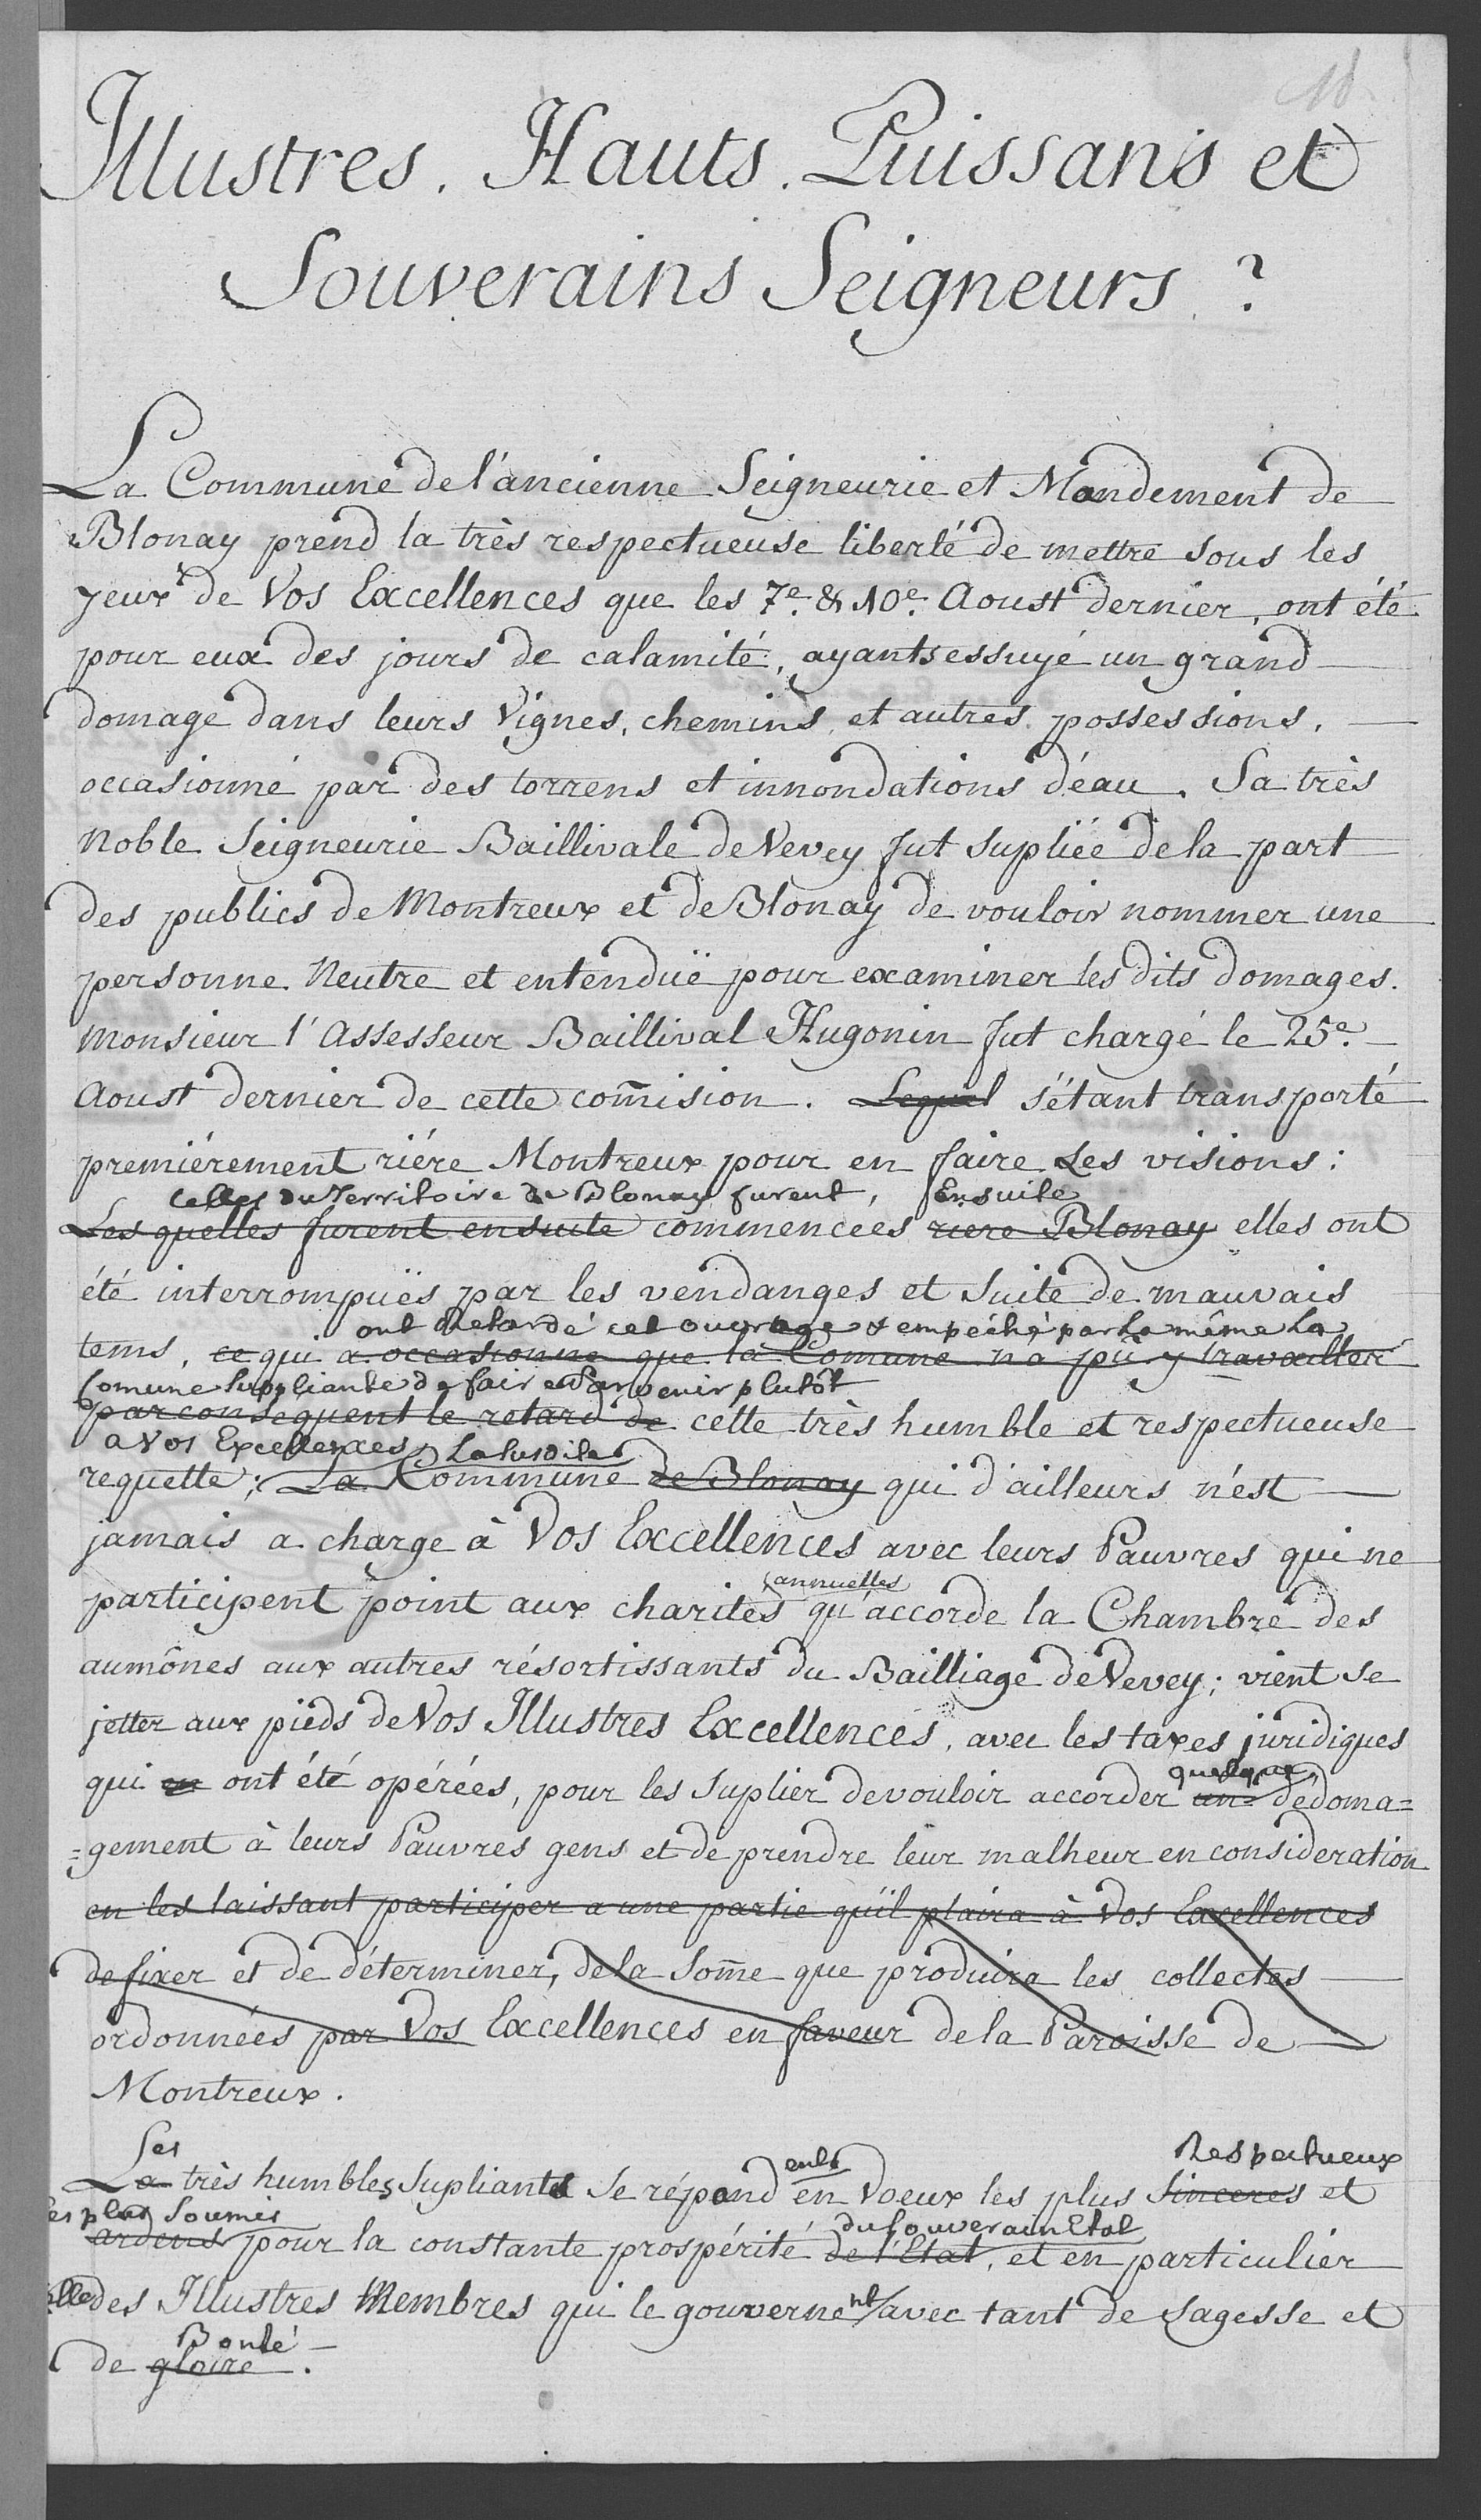 18
Illustres. Hauts. Puissans et
Souverains Seigneurs ?
La Commune de l'ancienne Seigneurie et Mandement de
Blonay prend la très respectueuse liberté de mettre sous les
yeux de Vos Excellences que les 7e. & 10e. Aoust dernier, ont été
pour eux des jours de calamité, ayants essuyé un grand
domage dans leurs Vignes, chemins, et autres possessions,
occasionné par des torrens et innondations d'eau. Sa très
Noble Seigneurie Baillivale de Vevey fut supliée de la part
des publics de Montreux et de Blonay de vouloir nommer une
personne Neutre et entenduë pour examiner les dits domages.
Monsieur l'Assesseur Baillival Hugonin fut chargé le 25e.
Aoust dernier de cette com̄ision. Lequel s'étant transporté
premiérement riére Montreux pour en faire Les visions:
Celles du Territoire de Blonay furent, Ensuite
Les quelles furent ensuite commencées riere Blonay elles ont
été interrompuës par les vendanges et suite de mauvais
ont Retardé cet ouvrage & empéché par La même La
tems, ce qui a occasionné que la Comune n'a pû y travailler
Comune Suppliante de faire Parvenir plutôt
par consequent le retard de cette très humble et respectueuse
a Vos Excellences, La susdite
requette; La Commune de Blonay qui d'ailleurs n'est
jamais a charge à Vos Excellences avec leurs Pauvres qui ne
annuelles
participent point aux charités qu'accorde la Chambre des
aumônes aux autres résortissants du Bailliage de Vevey; vient se
jetter aux pieds de Vos Illustres Excellences, avec les taxes juridiques
quelque
qui en ont été opérées, pour les suplier de vouloir accorder un dédoma=
=gement à leurs Pauvres gens et de prendre leur malheur en consideration
en les laissant participer a une partie qu'il plaira à Vos Excellences
de fixer et de déterminer, de la Som̄e que produira les collectes
ordonnées par Vos Excellences en faveur de la Paroisse de
Montreux.
Les ents Respectueux
La très humbles Supliants se répand en Voeux les plus sinceres et
les plus Soumis du Souverain Etat
ardens pour la constante prospérité de l'Etat, et en particulier
elle des Illustres Membres qui le gouvernent avec tant de Sagesse et
Bonté
de gloire.